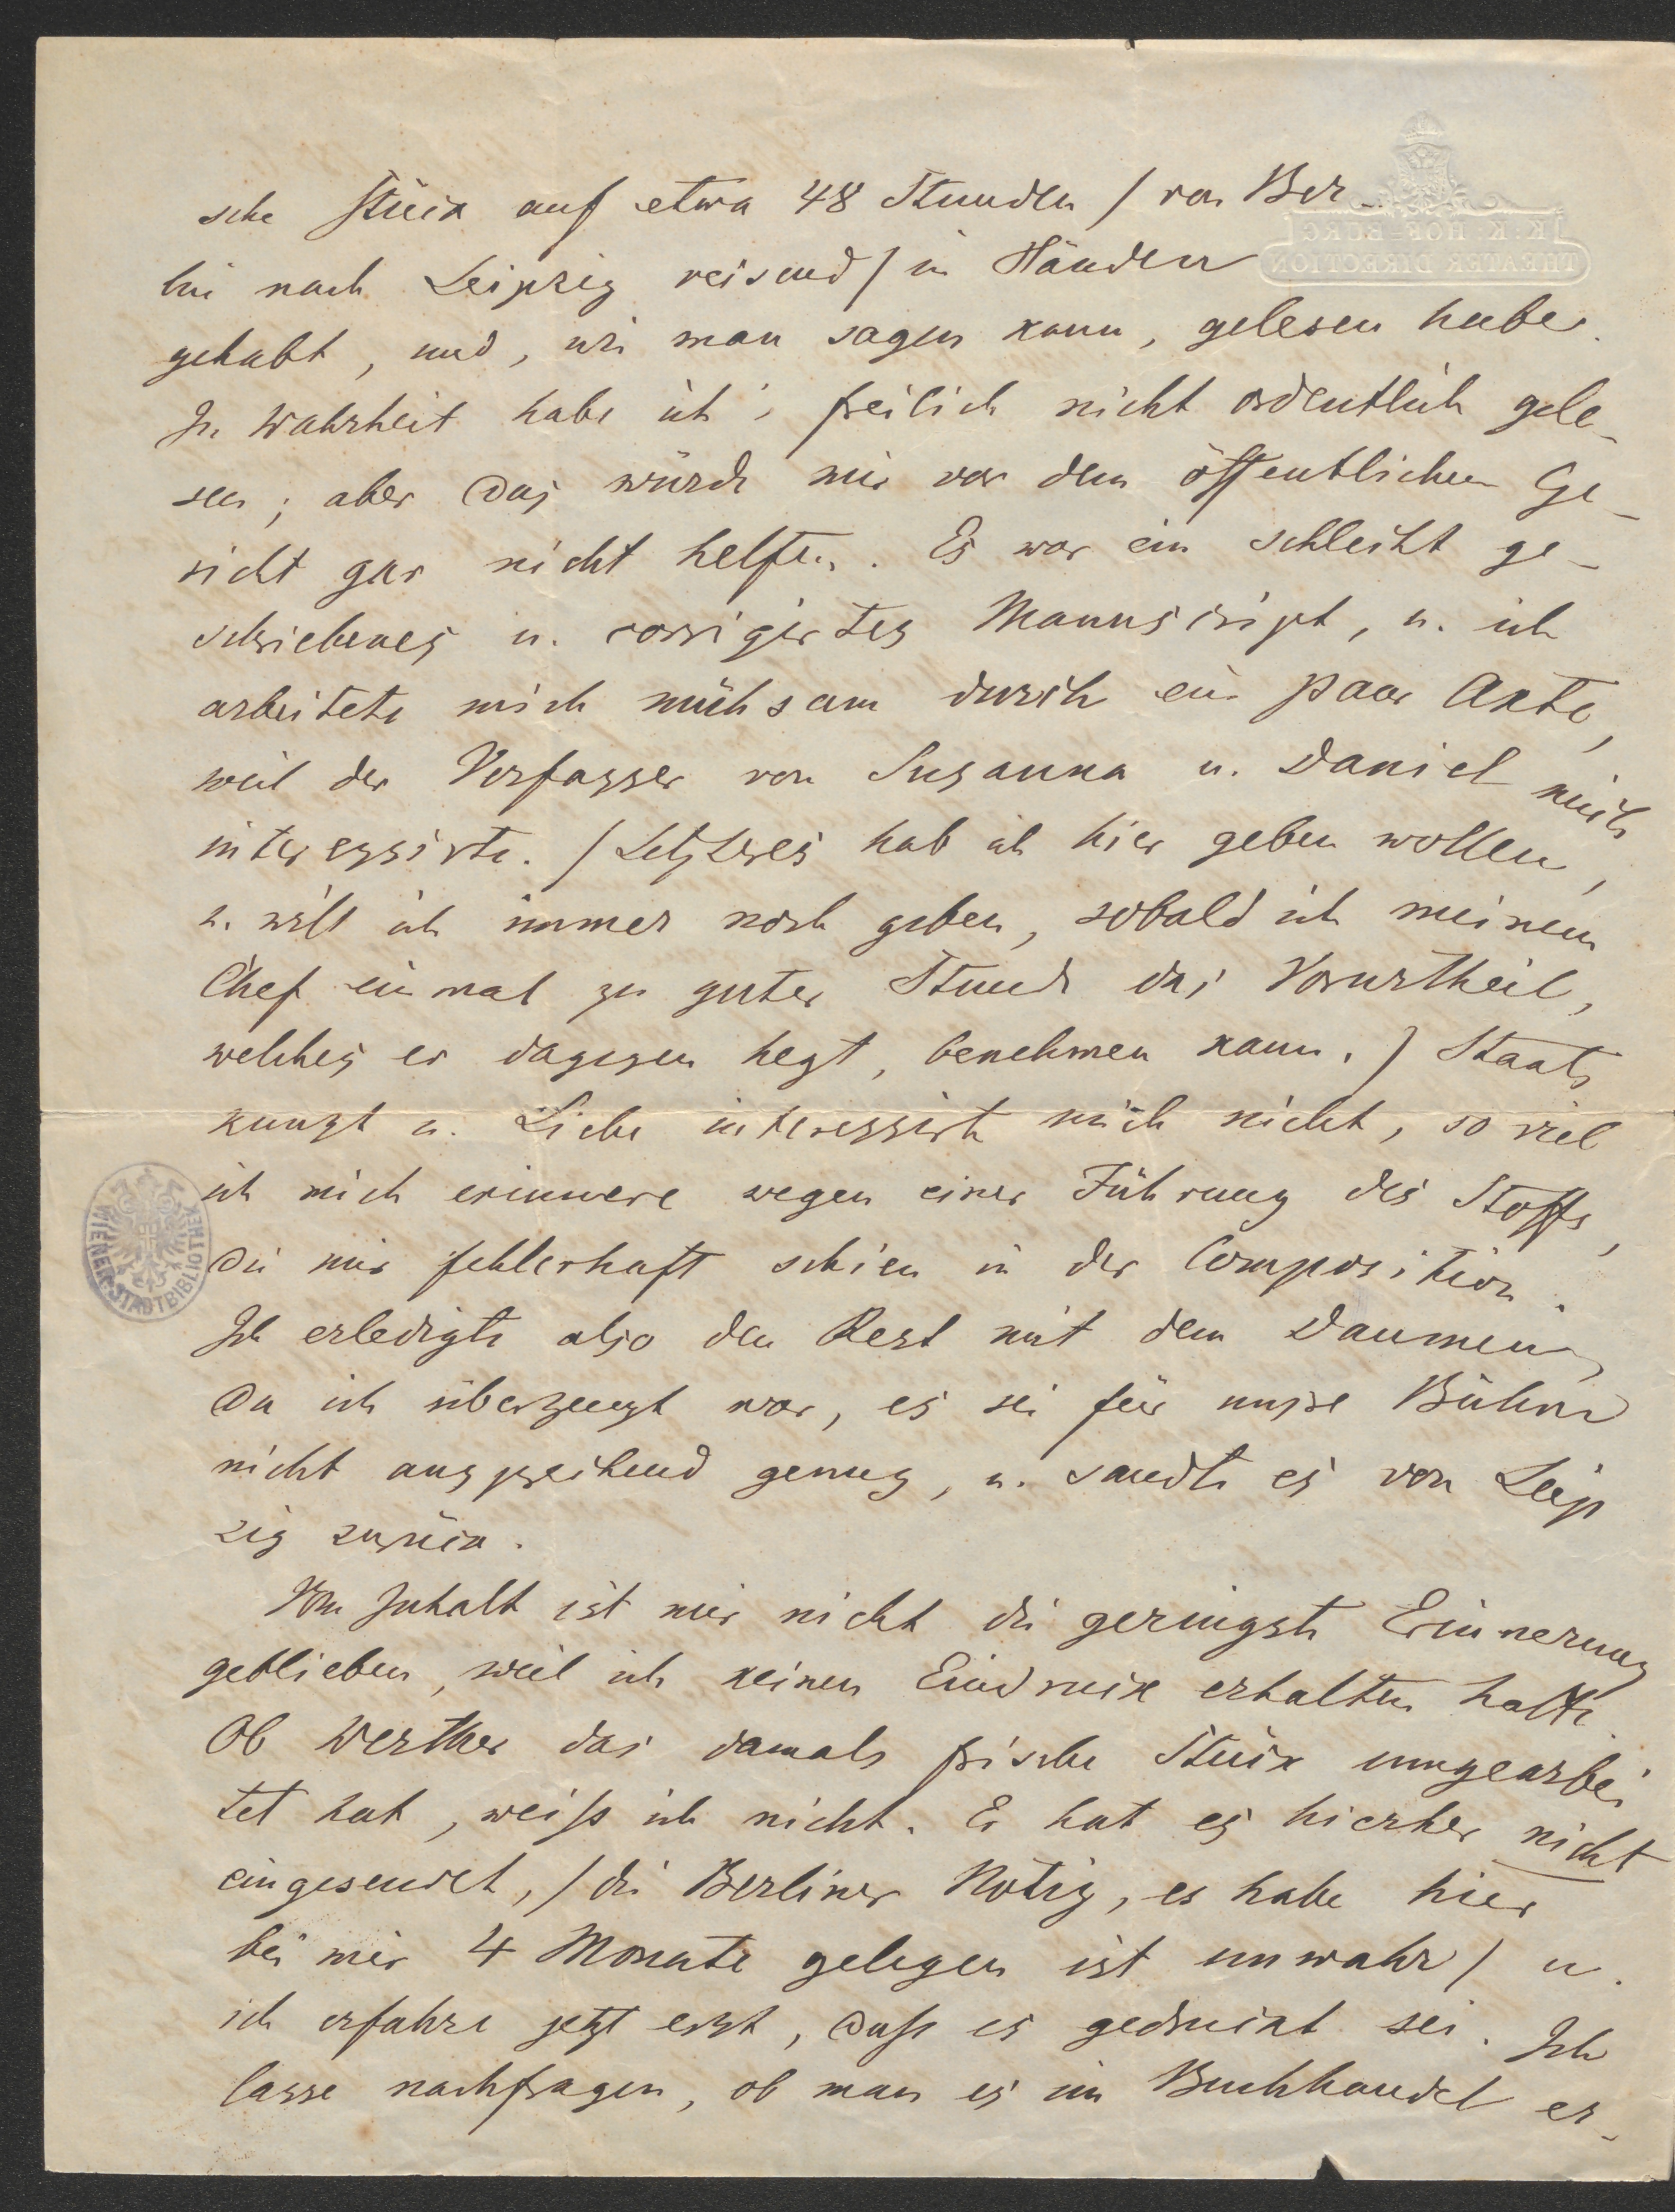 sche Stück auf etwa 48 Stunden / von Ber-
lin nach Leipzig reisend / in Händen
gehabt, und, wie man sagen kann, gelesen habe.
In Wahrheit habe ich's freilich nicht ordentlich gele-
sen; aber das würde mir vor dem öffentlichen Ge-
richt gar nicht helfen. Es war ein schlecht ge-
schriebenes u. corrigirtes Manuscript, u. ich
arbeitete mich mühsam durch ein paar Akte,
weil der Verfasser von Susanna u. Daniel mich
interessirte. / Letzteres hab ich hier geben wollen,
u. will ich immer noch geben, sobald ich meinem
Chef einmal zu guter Stunde das Vorurtheil,
welches er dagegen hegt, benehmen kann. / Staats
kunst u. Liebe interessirte mich nicht, so viel
ich mich erinnere wegen einer Führung des Stoffs,
die mir fehlerhaft schien in der Composition.
Ich erledigte also den Rest mit dem Daumen,
da ich überzeugt war, es sei für unsre Bühne
nicht ansprechend genug, u. sandte es von Leip
zig zurück.
Vom Inhalt ist mir nicht die geringste Erinnerung
geblieben, weil ich keinen Eindruck erhalten hatte.
Ob Werther das damals frische Stück umgearbei
tet hat, weiß ich nicht. Er hat es hierher nicht
eingesendet, / die Berliner Notiz, es habe hier
bei mir 4 Monate gelegen ist unwahr / u.
ich erfahre jetzt erst, daß es gedruckt sei. Ich
lasse nachfragen, ob man es im Buchhandel er-
K: K: HOF-BURG
THEATER DIRECTION
WIENER STADTBIBLIOTHEK